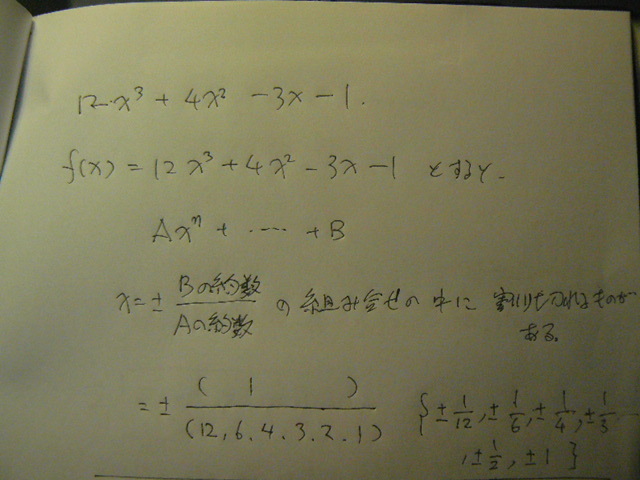 12x³ + 4x² − 3x − 1.
f(x) = 12x³ + 4x² − 3x − 1 とすると、
Axⁿ + ‥‥ + B
x = ± Bの約数/Aの約数 の組み合せの中に 割り切れるものが
ある。
= ± ( 1 )/(12, 6, 4, 3, 2, 1) { ± 1/12, ± 1/6, ± 1/4, ± 1/3
, ± 1/2, ± 1 }